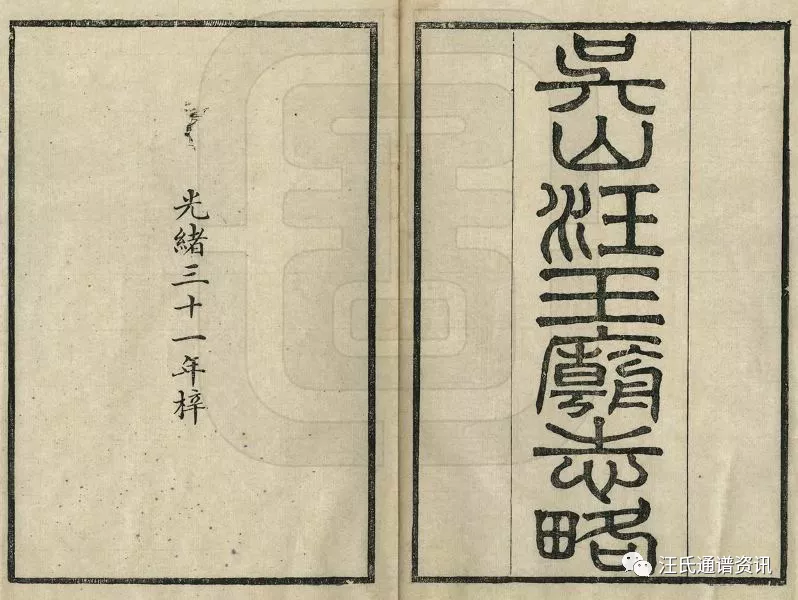 吳山汪王廟志略
光緒三十一年梓
汪氏通谱资讯